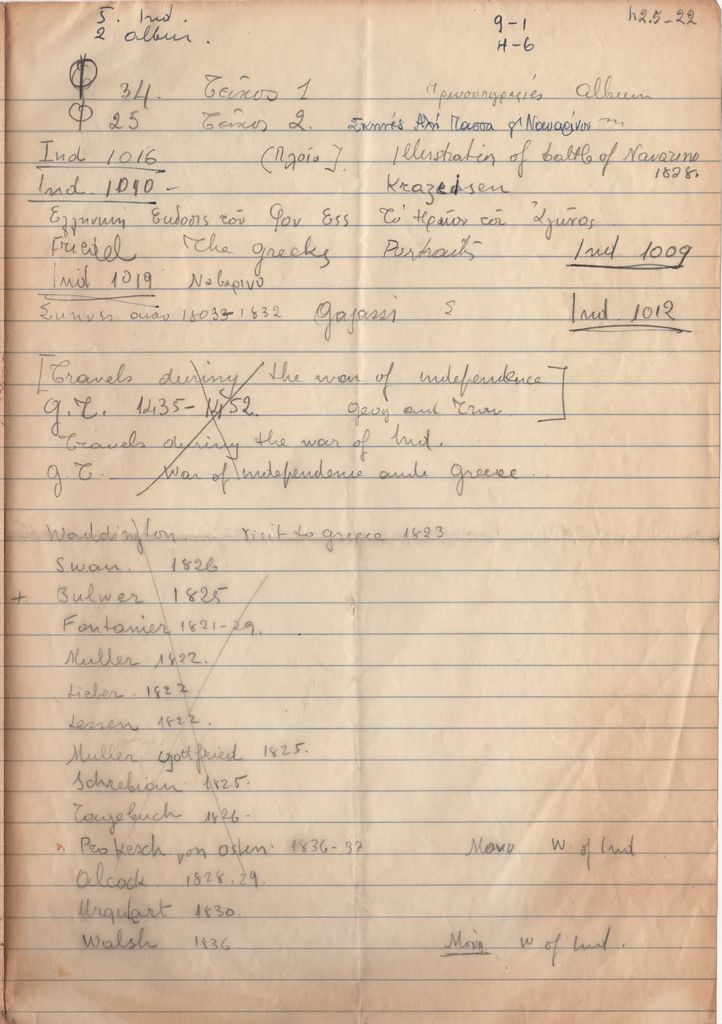 5. Ind.
2 album.
9-1
4-6
h2.5-22
φ 34. Τεῦχος 1 Προσωπογραφίες album
φ 25 Τεῦχος 2. Σκηνές Ἀλῆ Πασσᾶ Ναυαρίνου
Ind 1016 (Πλοῖο). Illustration of battle of Navarino 1828.
Ind. 1010 - Krazeisen
Ἑλληνική Ἔκδοσις τοῦ Φον Ἑςς Τό Ἡρῶον τοῦ Ἀγῶνος
Friedel The greeks Portraits Ind 1009
Ind 1019 Ναβαρινο
Σκηνές 1803-1832 Gajassi Σ Ind. 1012
[Travels during the war of independence]
g.T. 1435-1452. geog and Trav.
Travels during the war of Ind.
g.T. War of independence Greece.
Waddington. Visit to greece 1823
Swan. 1826
+ Bulwer 1825
Fontanier 1821-29.
Muller 1822.
Lieber 1822.
Lessen 1822.
Muller gottfried 1825.
Schrebian 1825.
Tagebuch 1826.
Prokesch von Osten. 1836-37 W. of Ind
Alcock 1828.29.
Urquhart 1830.
Walsh 1836. W of Ind.